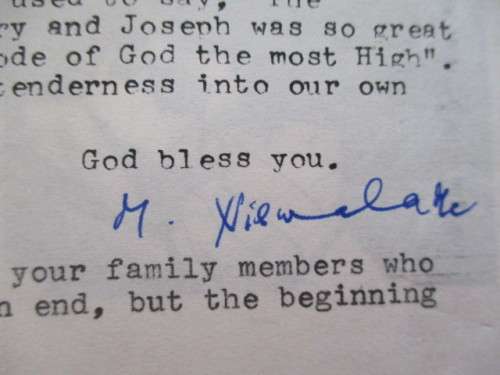 used to say, "The
ry and Joseph was so great
ode of God the most High".
tenderness into our own
God bless you.
M. Nirmala MC
your family members who
n end, but the beginning